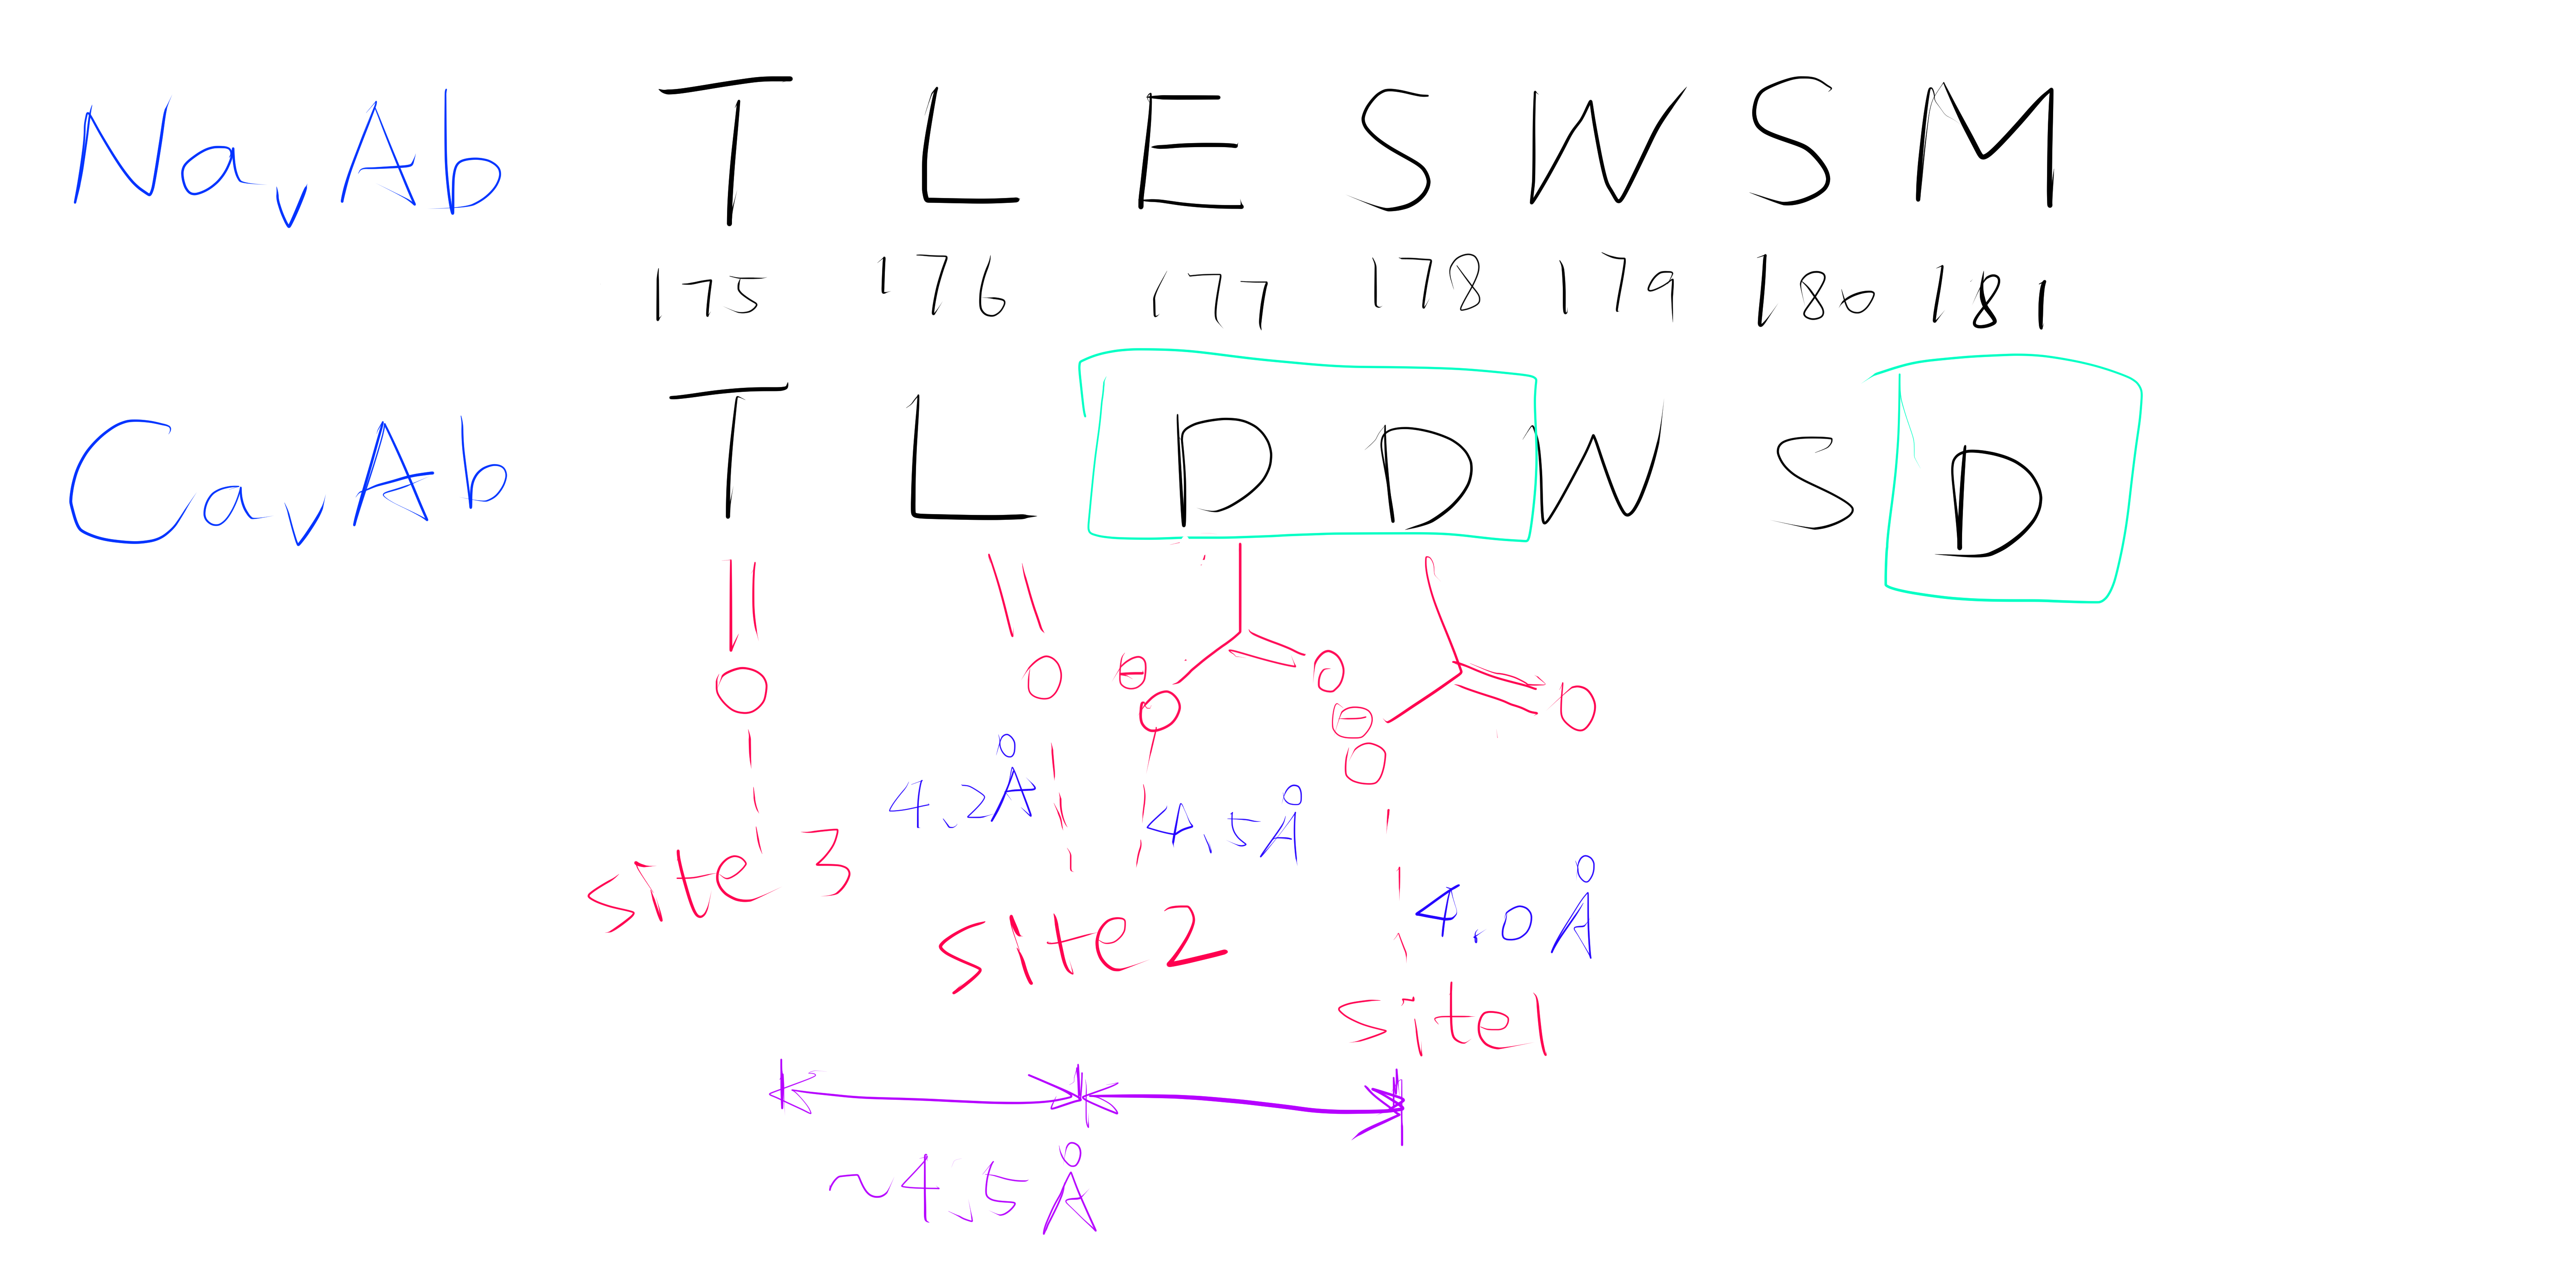 NavAb T L E S W S M
175 176 177 178 179 180 181
CavAb T L D D W S D
O O ⊖ O O ⊖ O O
4.2Å 4.5Å 4.0Å
site 3 site 2 site 1
~4.5Å